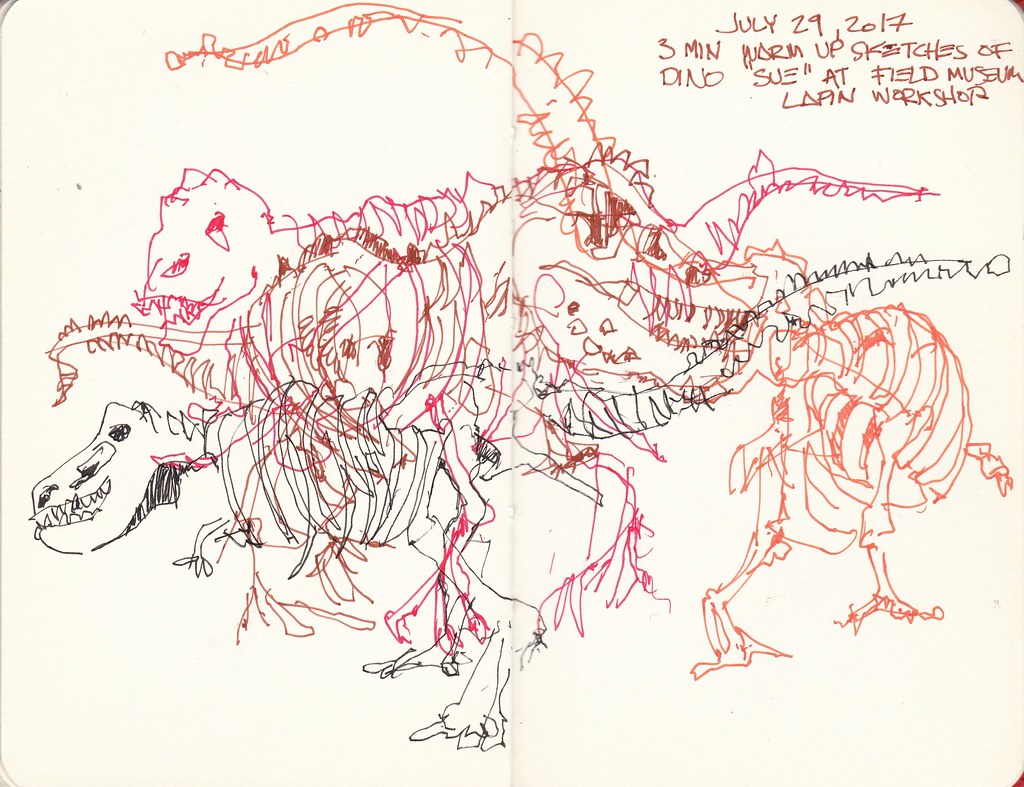 JULY 29, 2017
3 MIN WARM UP SKETCHES OF
DINO "SUE" AT FIELD MUSEUM
LAPIN WORKSHOP